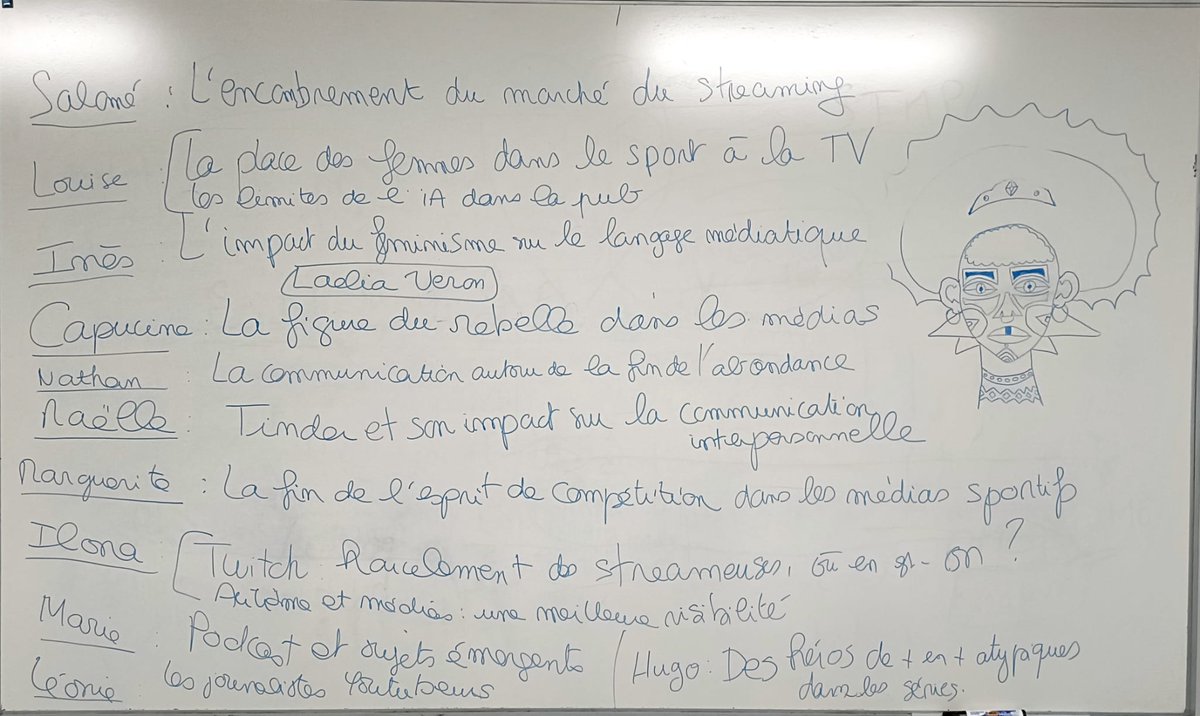 Salomé : L'encombrement du marché du streaming
Louise La place des femmes dans le sport à la TV
les limites de l'iA dans la pub
Inès : L'impact du féminisme sur le langage médiatique
Laelia Veron
Capucine : La figure du rebelle dans les médias
Nathan : La communication autour de la fin de l'abondance
Naëlle : Tinder et son impact sur la communication
interpersonnelle
Marguerite : La fin de l'esprit de compétition dans les médias sportifs
Ilona Twitch Harcèlement des streameuses, où en est-on ?
Autisme et médias : une meilleure visibilité
Marie : Podcast et sujets émergents
Léonie : Les journalistes Youtubeurs
Hugo : Des héros de + en + atypiques
dans les séries.